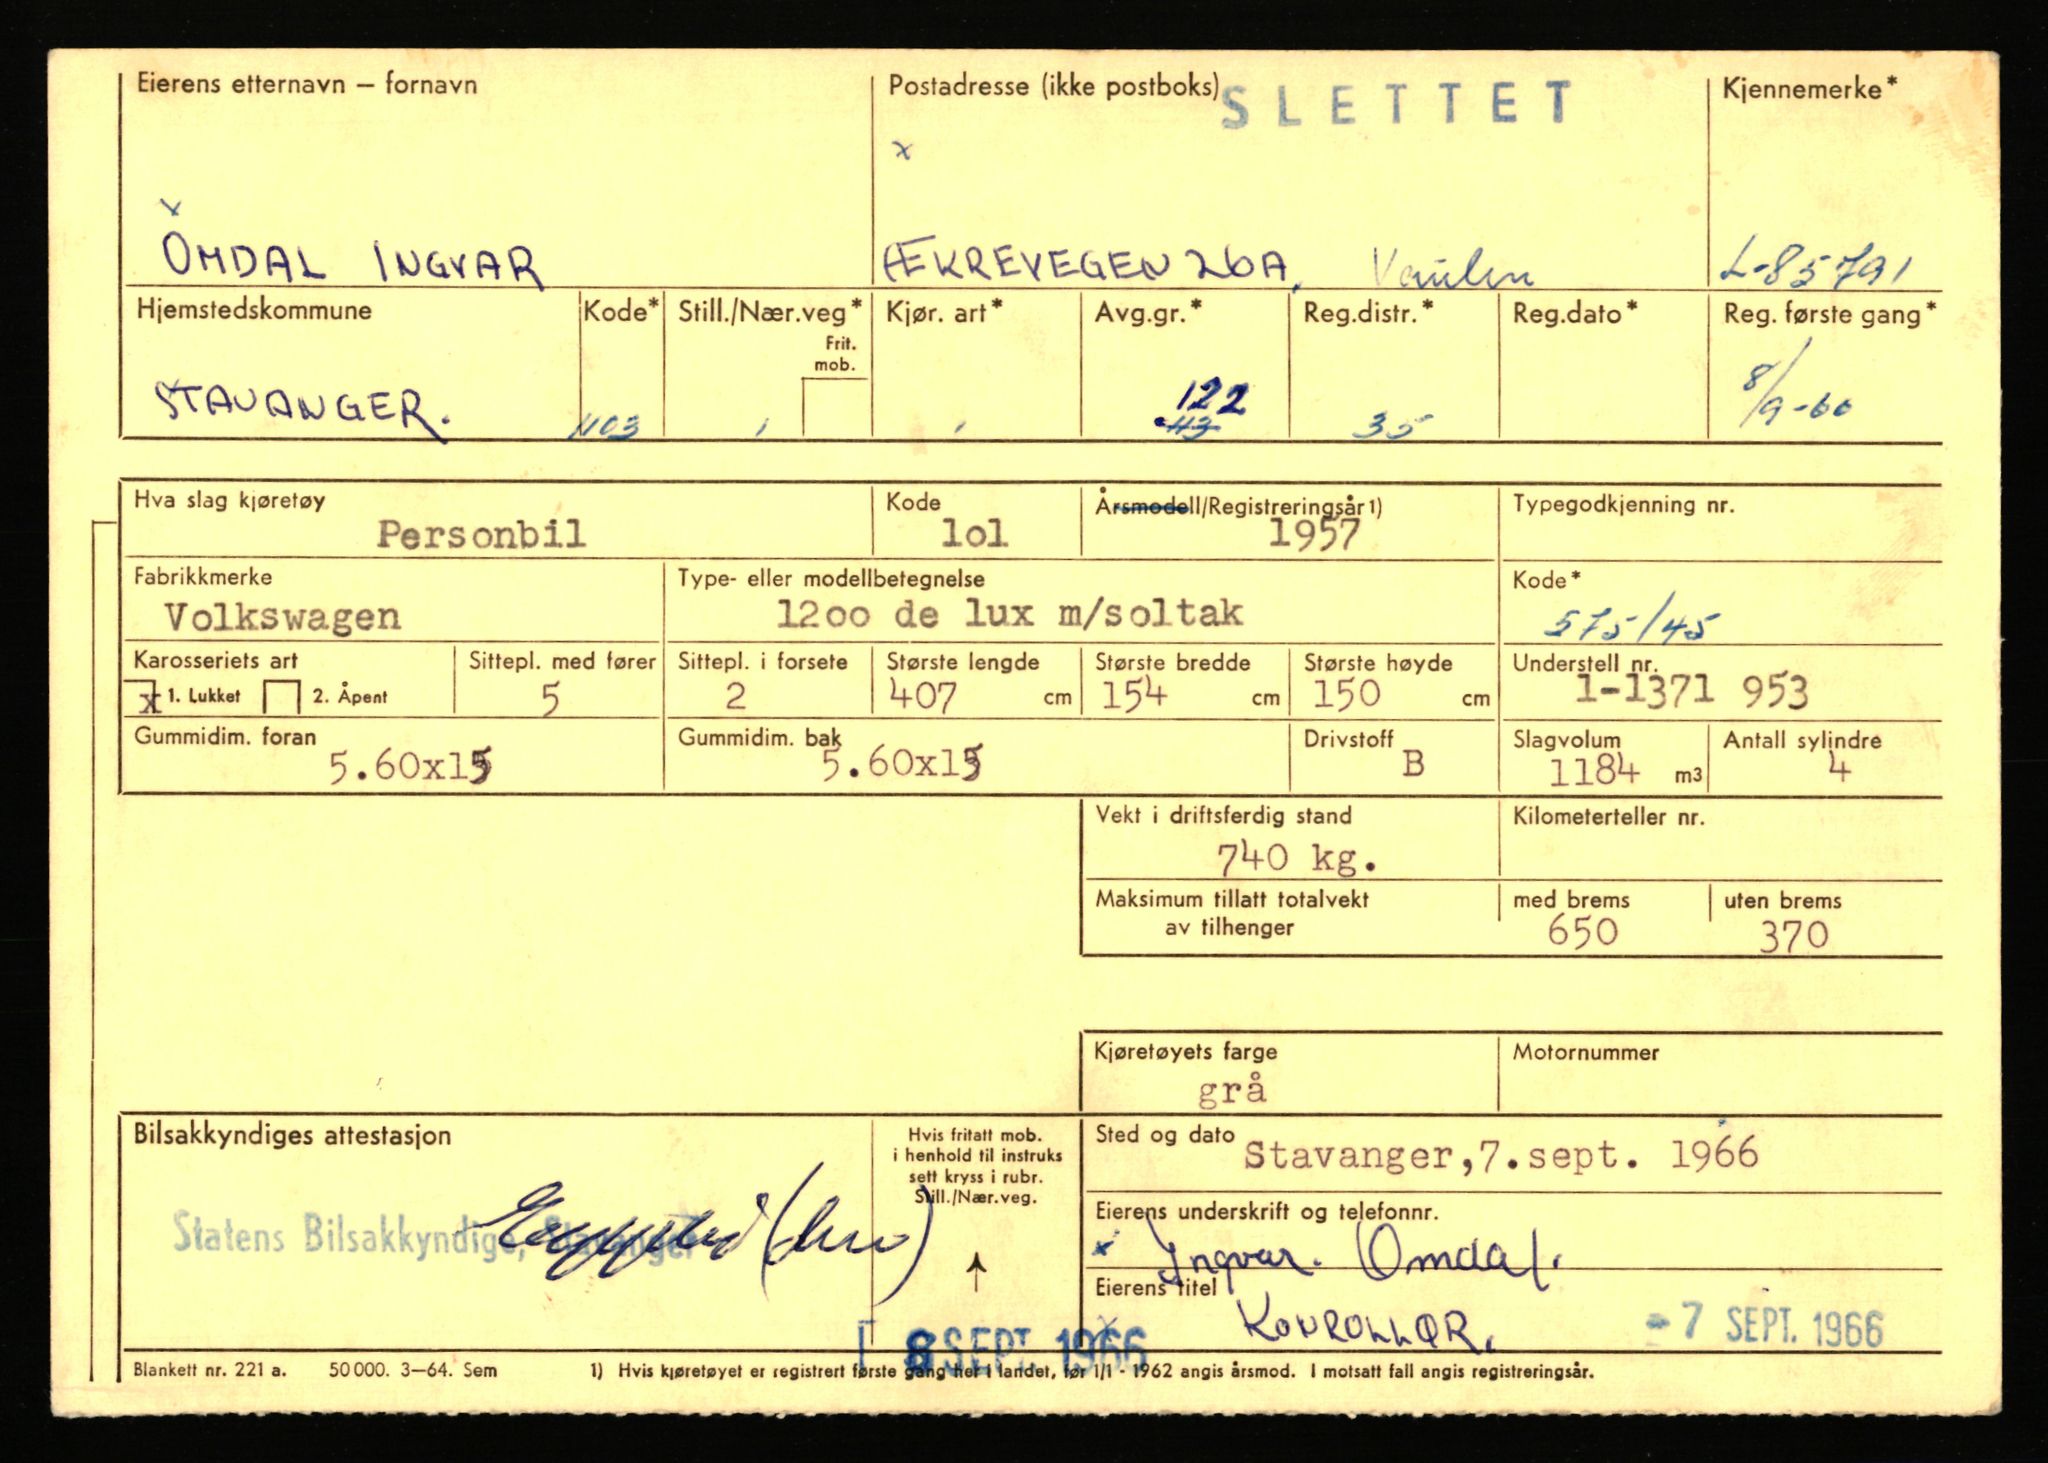 Eierens etternavn – fornavn
Postadresse (ikke postboks)
SLETTET
Kjennemerke*
x
x
OMDAL INGVAR
ÆKREVEGEN 26A, Vaulen
L-85791
Hjemstedskommune
Kode*
Still./Nær.veg*
Frit.
mob.
Kjør. art*
Avg.gr.*
Reg.distr.*
Reg.dato*
Reg. første gang*
STAVANGER.
1103
1
1
122
113
35
8/9-66
Hva slag kjøretøy
Personbil
Kode
lol
Årsmodell/Registreringsår 1)
1957
Typegodkjenning nr.
Fabrikkmerke
Volkswagen
Type- eller modellbetegnelse
12oo de lux m/soltak
Kode*
575/45
Karosseriets art
x 1. Lukket 2. Åpent
Sittepl. med fører
5
Sittepl. i forsete
2
Største lengde
407 cm
Største bredde
154 cm
Største høyde
150 cm
Understell nr.
1-1371 953
Gummidim. foran
5.60x15
Gummidim. bak
5.60x15
Drivstoff
B
Slagvolum
1184 m3
Antall sylindre
4
Vekt i driftsferdig stand
740 kg.
Kilometerteller nr.
Maksimum tillatt totalvekt
av tilhenger
med brems
650
uten brems
370
Kjøretøyets farge
grå
Motornummer
Bilsakkyndiges attestasjon
Statens Bilsakkyndige, Stavanger
Hvis fritatt mob.
i henhold til instruks
sett kryss i rubr.
Still./Nær.veg.
Sted og dato
Stavanger,7.sept. 1966
Eierens underskrift og telefonnr.
x Ingvar. Omdal.
Eierens titel
KONROLLØR.
-7 SEPT. 1966
8 SEPT. 1966
Blankett nr. 221 a. 50 000. 3–64. Sem
1) Hvis kjøretøyet er registrert første gang her i landet, før 1/1 - 1962 angis årsmod. I motsatt fall angis registreringsår.